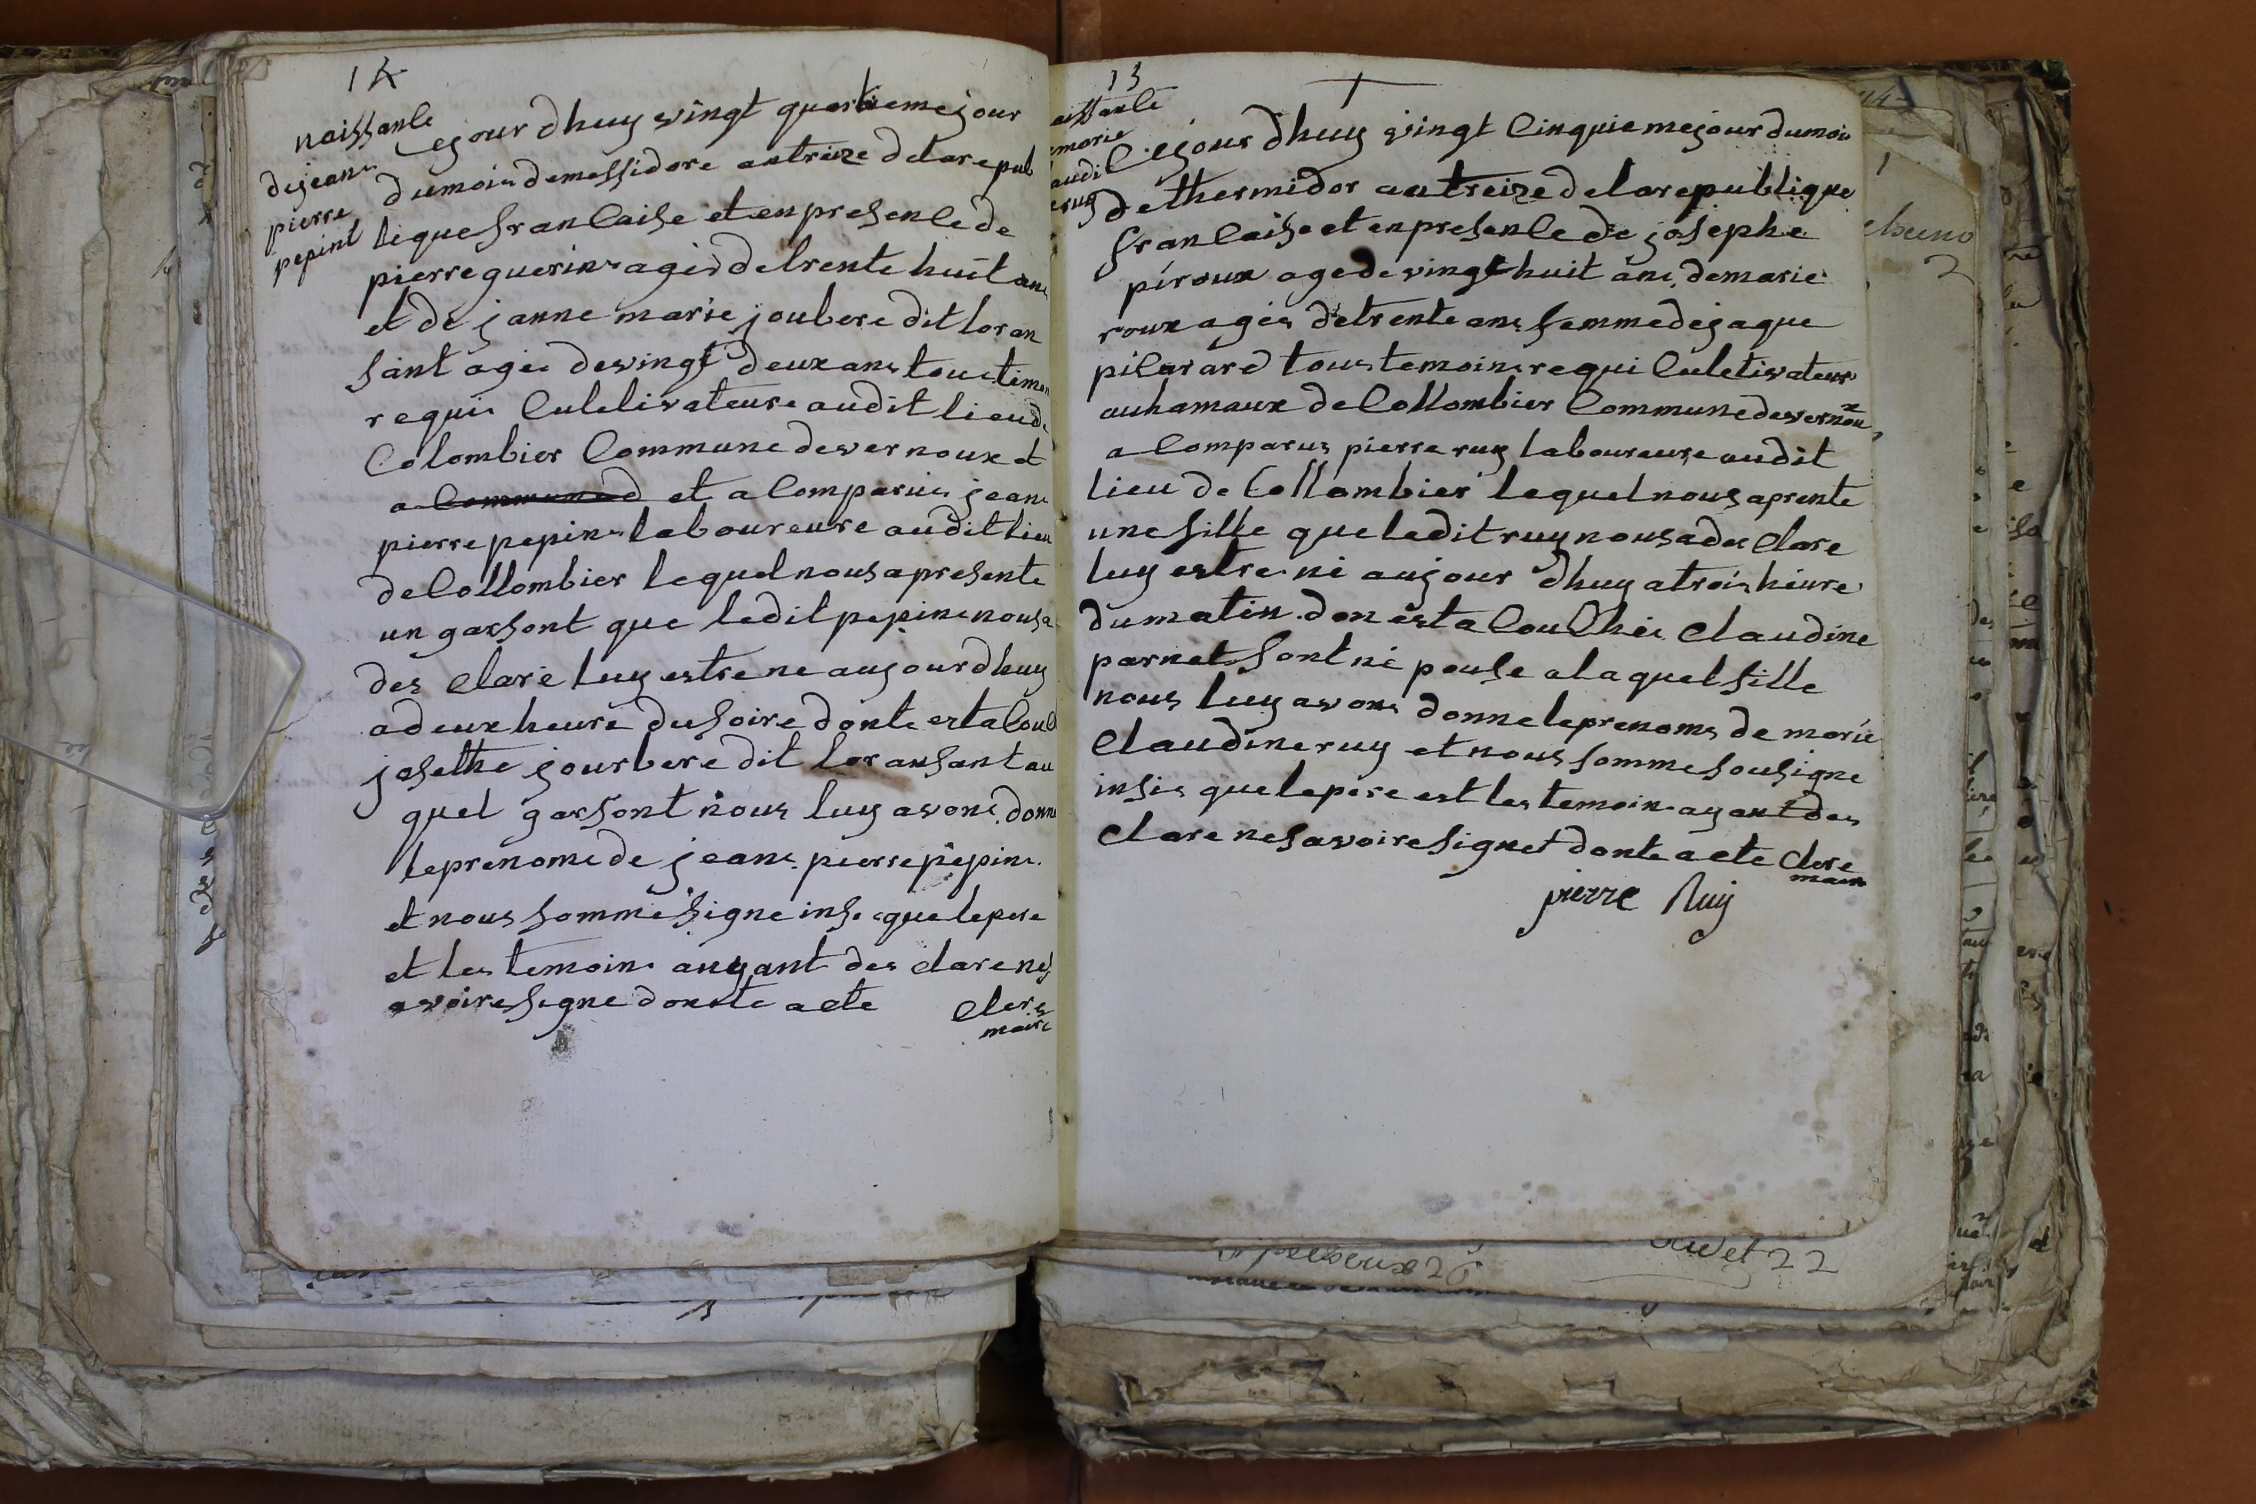 naissance
de jeans
pierre
pepint
Cejour dhuy vingt quatriemejour
dumois demessidore antreize delarepub
lique francaise et en presence de
pierre guerins agés detrente huit ans
et de janne marie joubere dit loran
sant agés devingt deux ans tous temon
requis Culetivateure audit lieu de
Colombier Commune devernoux et
a Communed et a Comparus jeans
pierre pepins laboureure audit lieu
de Collombier lequel nous apresente
un garsont que ledit pepins nous a
des Claré luy estre ne aujourdhuy
a deux heure dusoire donte esta Couc
josethe jourbere dit loransant au
quel garsont nous luy avons donne
leprenome de jeans pierre pepins
et nous somme signe insi que lepere
et les temoins anyant des clare nes
avoire signe donte acte Clere
maire
13
aissance
marie
audi
ruy
Cejour dhuy vingt Cinquiemejour dumois
de thermidor antreize delarepublique
francaise et enpresence de josephe
piroux age de vingt huit ans, demarie
roux agés detrente ans femme dejaque
pilavard tous temoins requi Culetivateurs
auhamaux de Collombier Commune devernoux
a Comparus pierre ruy laboureure audit
lieu de Collombier lequel nous aprente
une fille que ledit ruy nous a des Clare
luy estre né aujour dhuy atrois heure
dumatin don esta Couchés Claudine
parnet sont né pouse alaquel fille
nous luy avons donne leprenoms de marie
Claudine ruy et nous somme sousigne
insis que lepere est les temoins ayant des
clare ne savoire signet donte acte Clere
maire
pierre Ruy